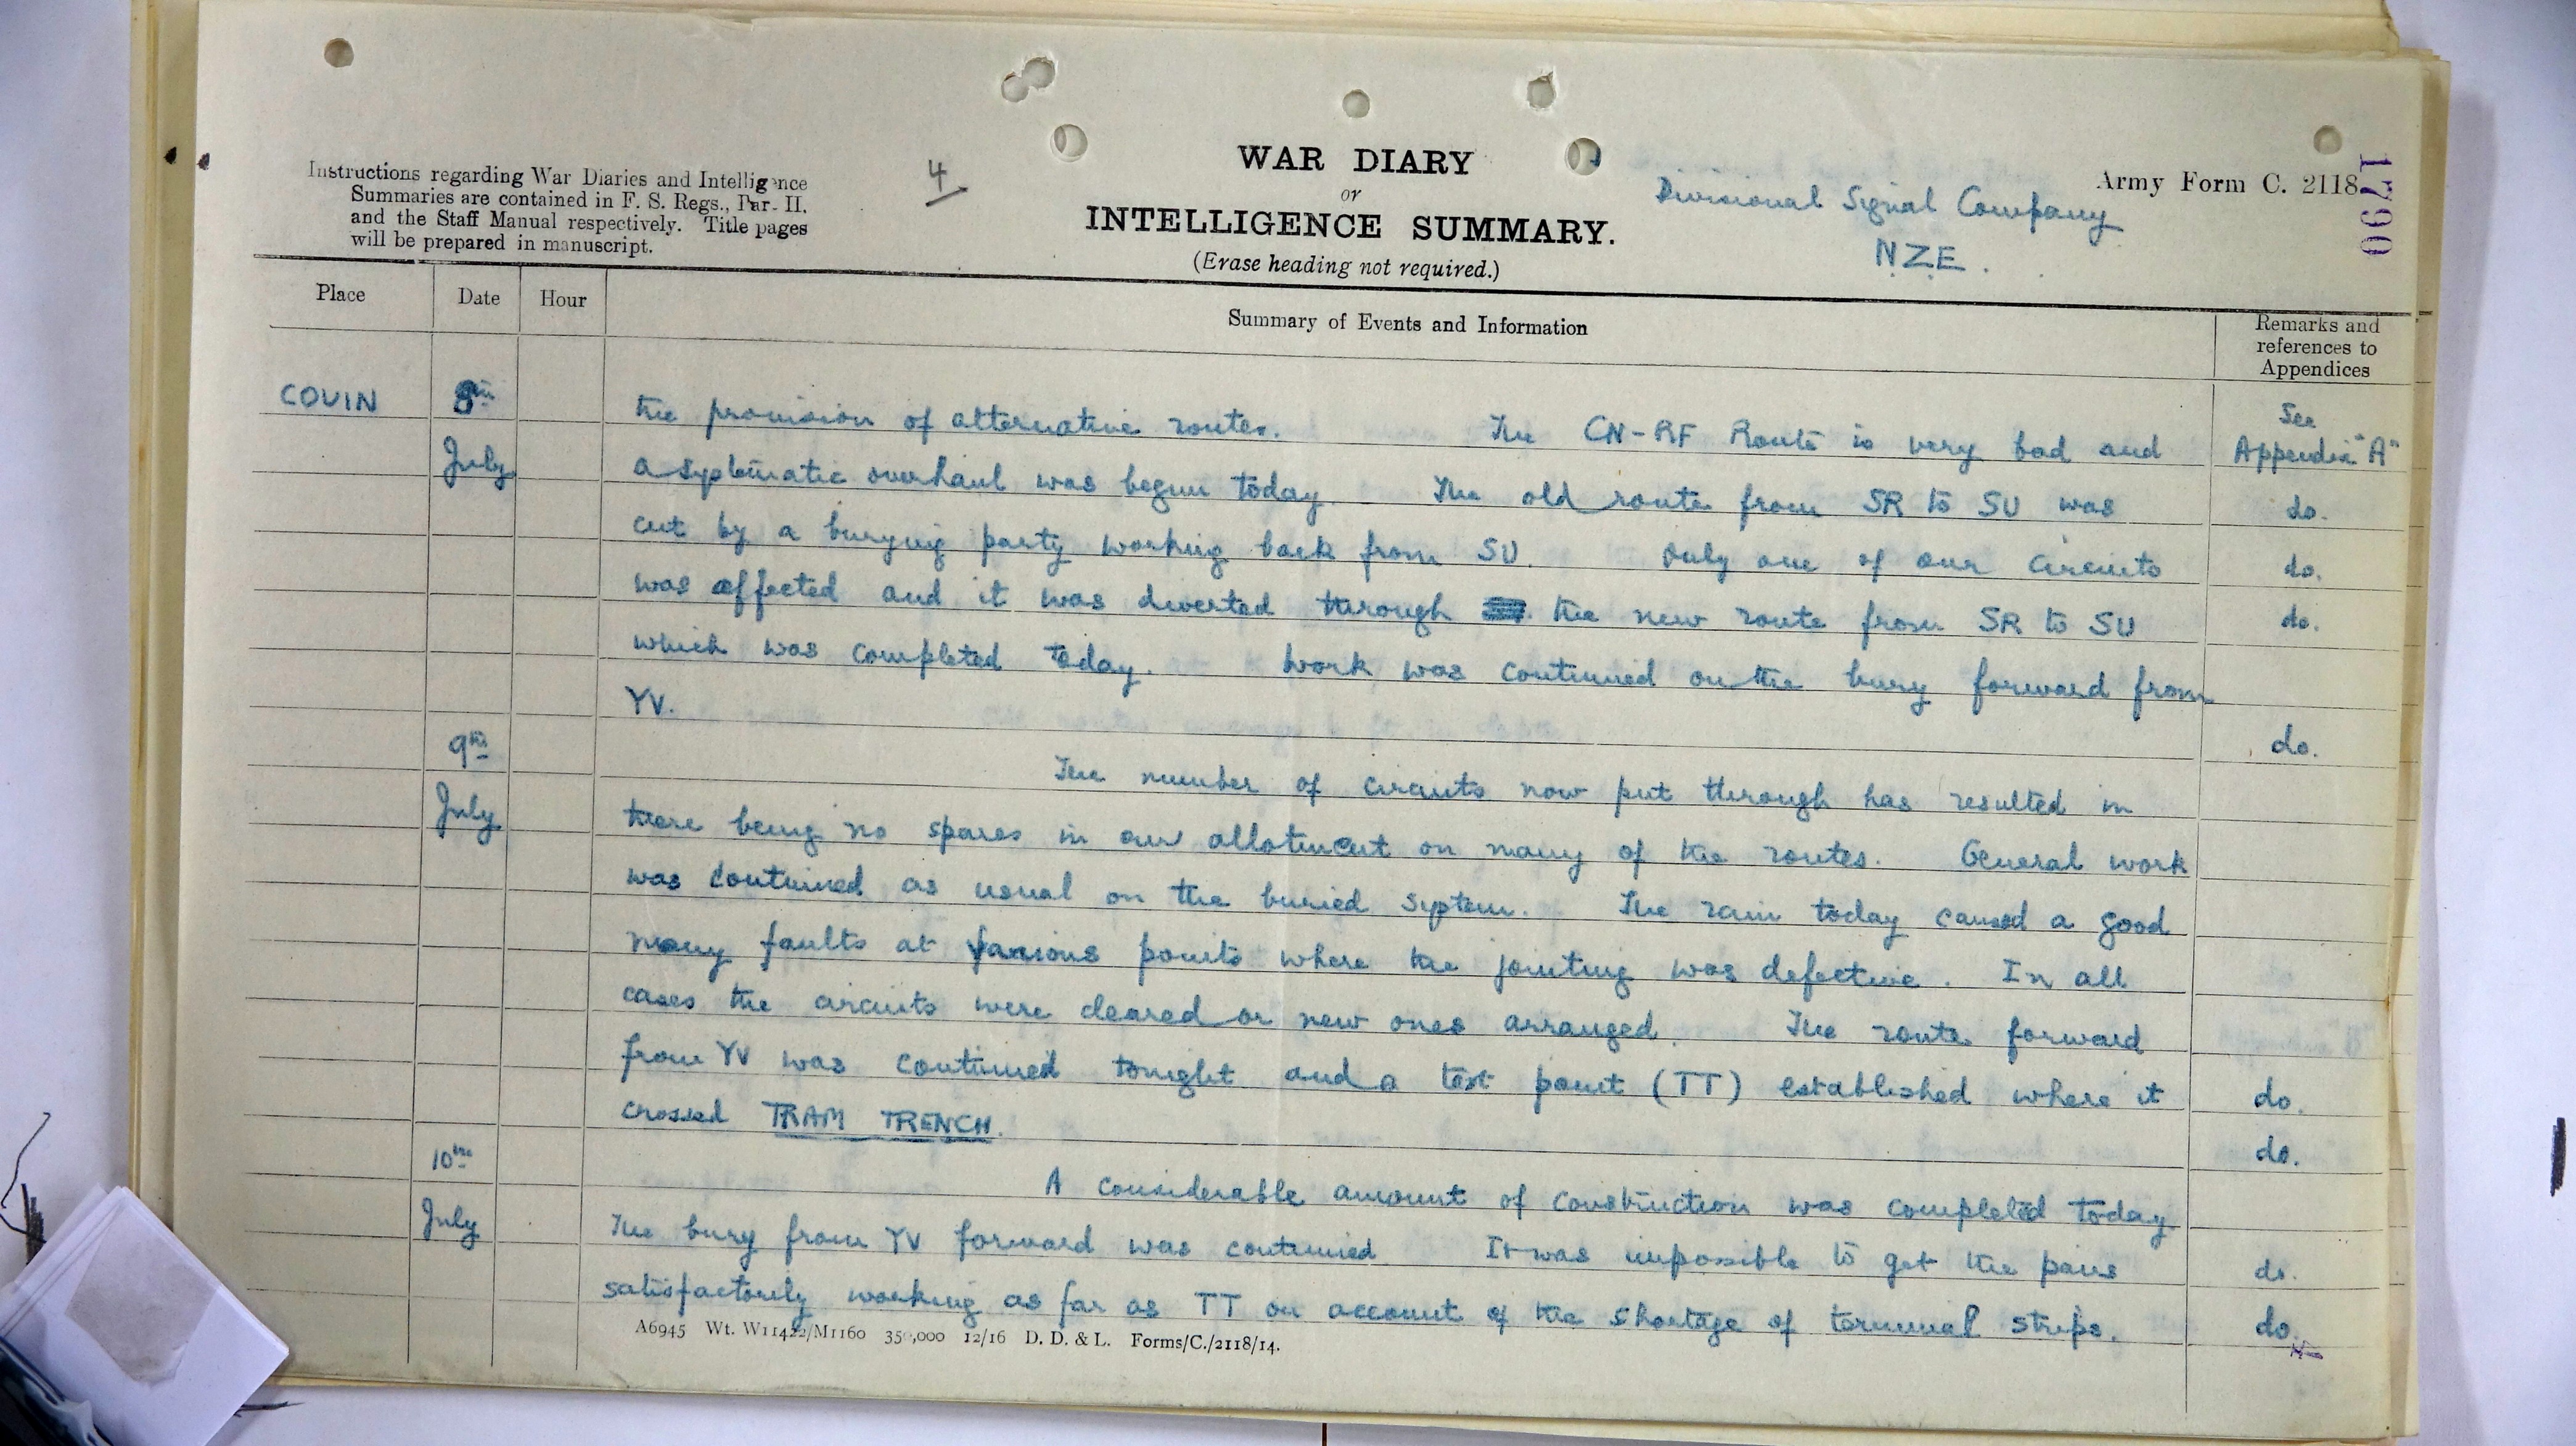 Instructions regarding War Diaries and Intelligence
Summaries are contained in F. S. Regs., Par. II.
and the Staff Manual respectively. Title pages
will be prepared in manuscript.
4
WAR DIARY
or
INTELLIGENCE SUMMARY.
(Erase heading not required.)
Divisional Signal Company
N.Z.E.
Army Form C. 2118.
1790
Place Date Hour Summary of Events and Information Remarks and references to Appendices
COUIN 8th the provision of alternative routes. The CN-RF Route is very bad and See
July a systematic overhaul was begun today. The old route from SR to SU was Appendix "A"
cut by a burying party working back from SU. Only one of our circuits do.
was affected and it was diverted through the new route from SR to SU do.
which was completed today. Work was continued on the bury forward from do.
YV.
9th The number of circuits now put through has resulted in do.
July there being no spares in our allotment on many of the routes. General work
was continued as usual on the buried system. The rain today caused a good
many faults at various points where the jointing was defective. In all
cases the circuits were cleared or new ones arranged. The route forward
from YV was continued tonight and a test point (TT) established where it do.
crossed TRAM TRENCH. do.
10th A considerable amount of construction was completed today
July The bury from YV forward was continued It was impossible to get the pairs do.
satisfactorily working as far as TT on account of the shortage of terminal strips. do.
A6945 Wt. W11422/M1160 350,000 12/16 D. D. & L. Forms/C./2118/14.